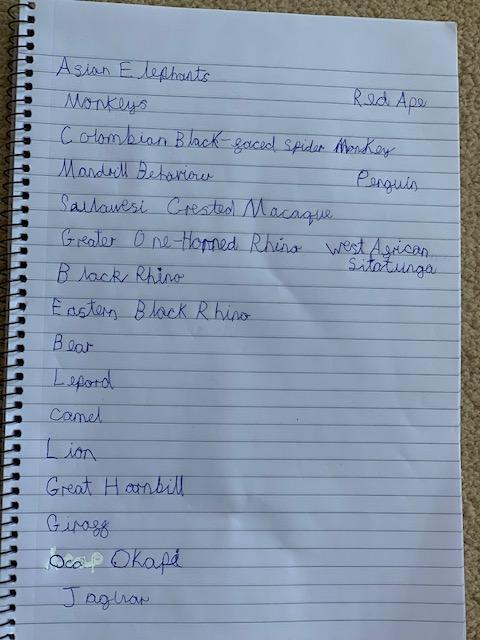 Asian Elephants
Monkeys Red Ape
Colombian Black-faced spider Monkey
Mandrill Behaviour Penguin
Sullawesi Crested Macaque
Greater One-Horned Rhino West African
Sitatunga
Black Rhino
Eastern Black Rhino
Bear
Lepord
Camel
Lion
Great Hornbill
Giraff
Okapi
Jaguar